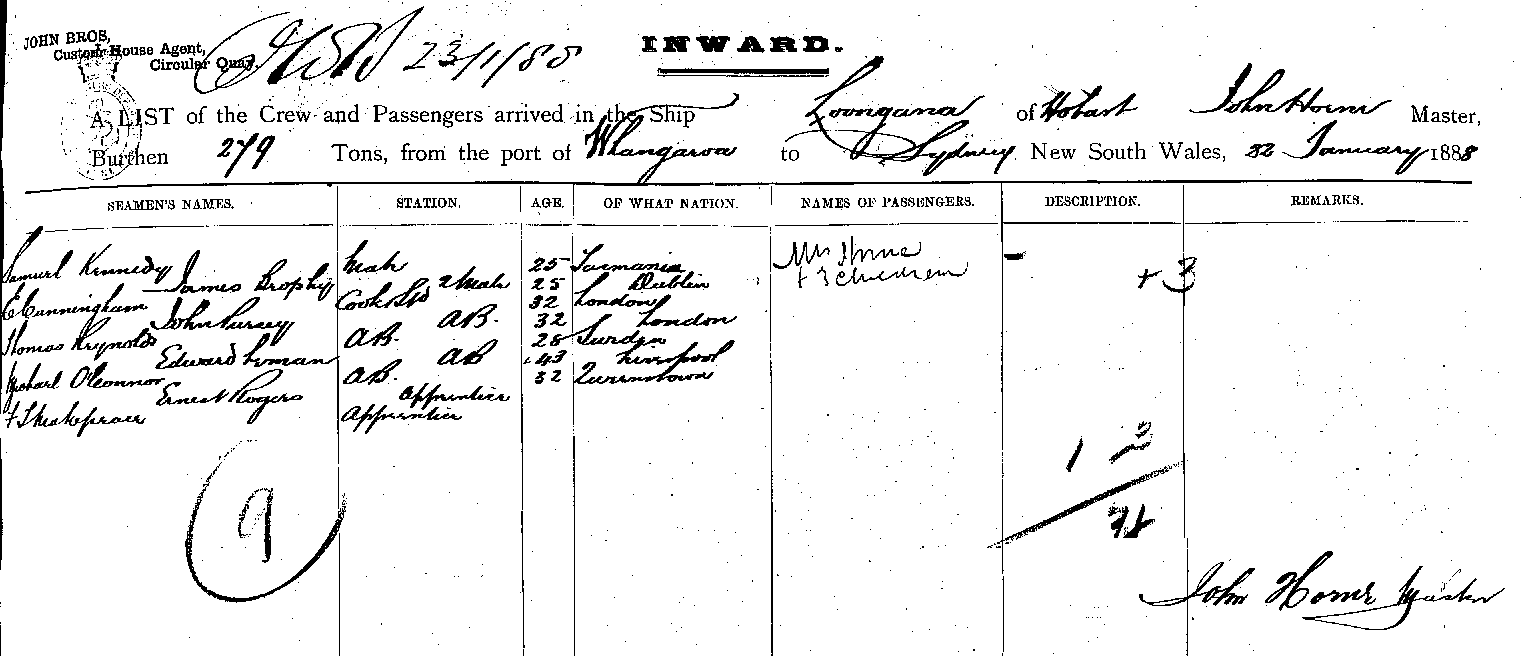 JOHN BROS,
Custom House Agent,
Circular Quay.
23/1/88
INWARD.
A LIST of the Crew and Passengers arrived in the Ship Loongana of Hobart John Horne Master,
Burthen 279 Tons, from the port of Whangaroa to Sydney New South Wales, 22 January 1888
SEAMEN'S NAMES. STATION. AGE. OF WHAT NATION. NAMES OF PASSENGERS. DESCRIPTION. REMARKS.
Samuel Kennedy Mate 25 Tasmania Mrs Horne
James Brophy 2 Mate 25 Dublin + 3 children + 3
E Cunningham Cook & Std 32 London
John Pursey AB. 32 London
Thomas Reynolds AB. 28
Edward Leman AB 43 Liverpool
Michael O'Connor AB. 32 Queenstown
Ernest Rogers Apprentice
Apprentice
9
1 3
John Horne Master